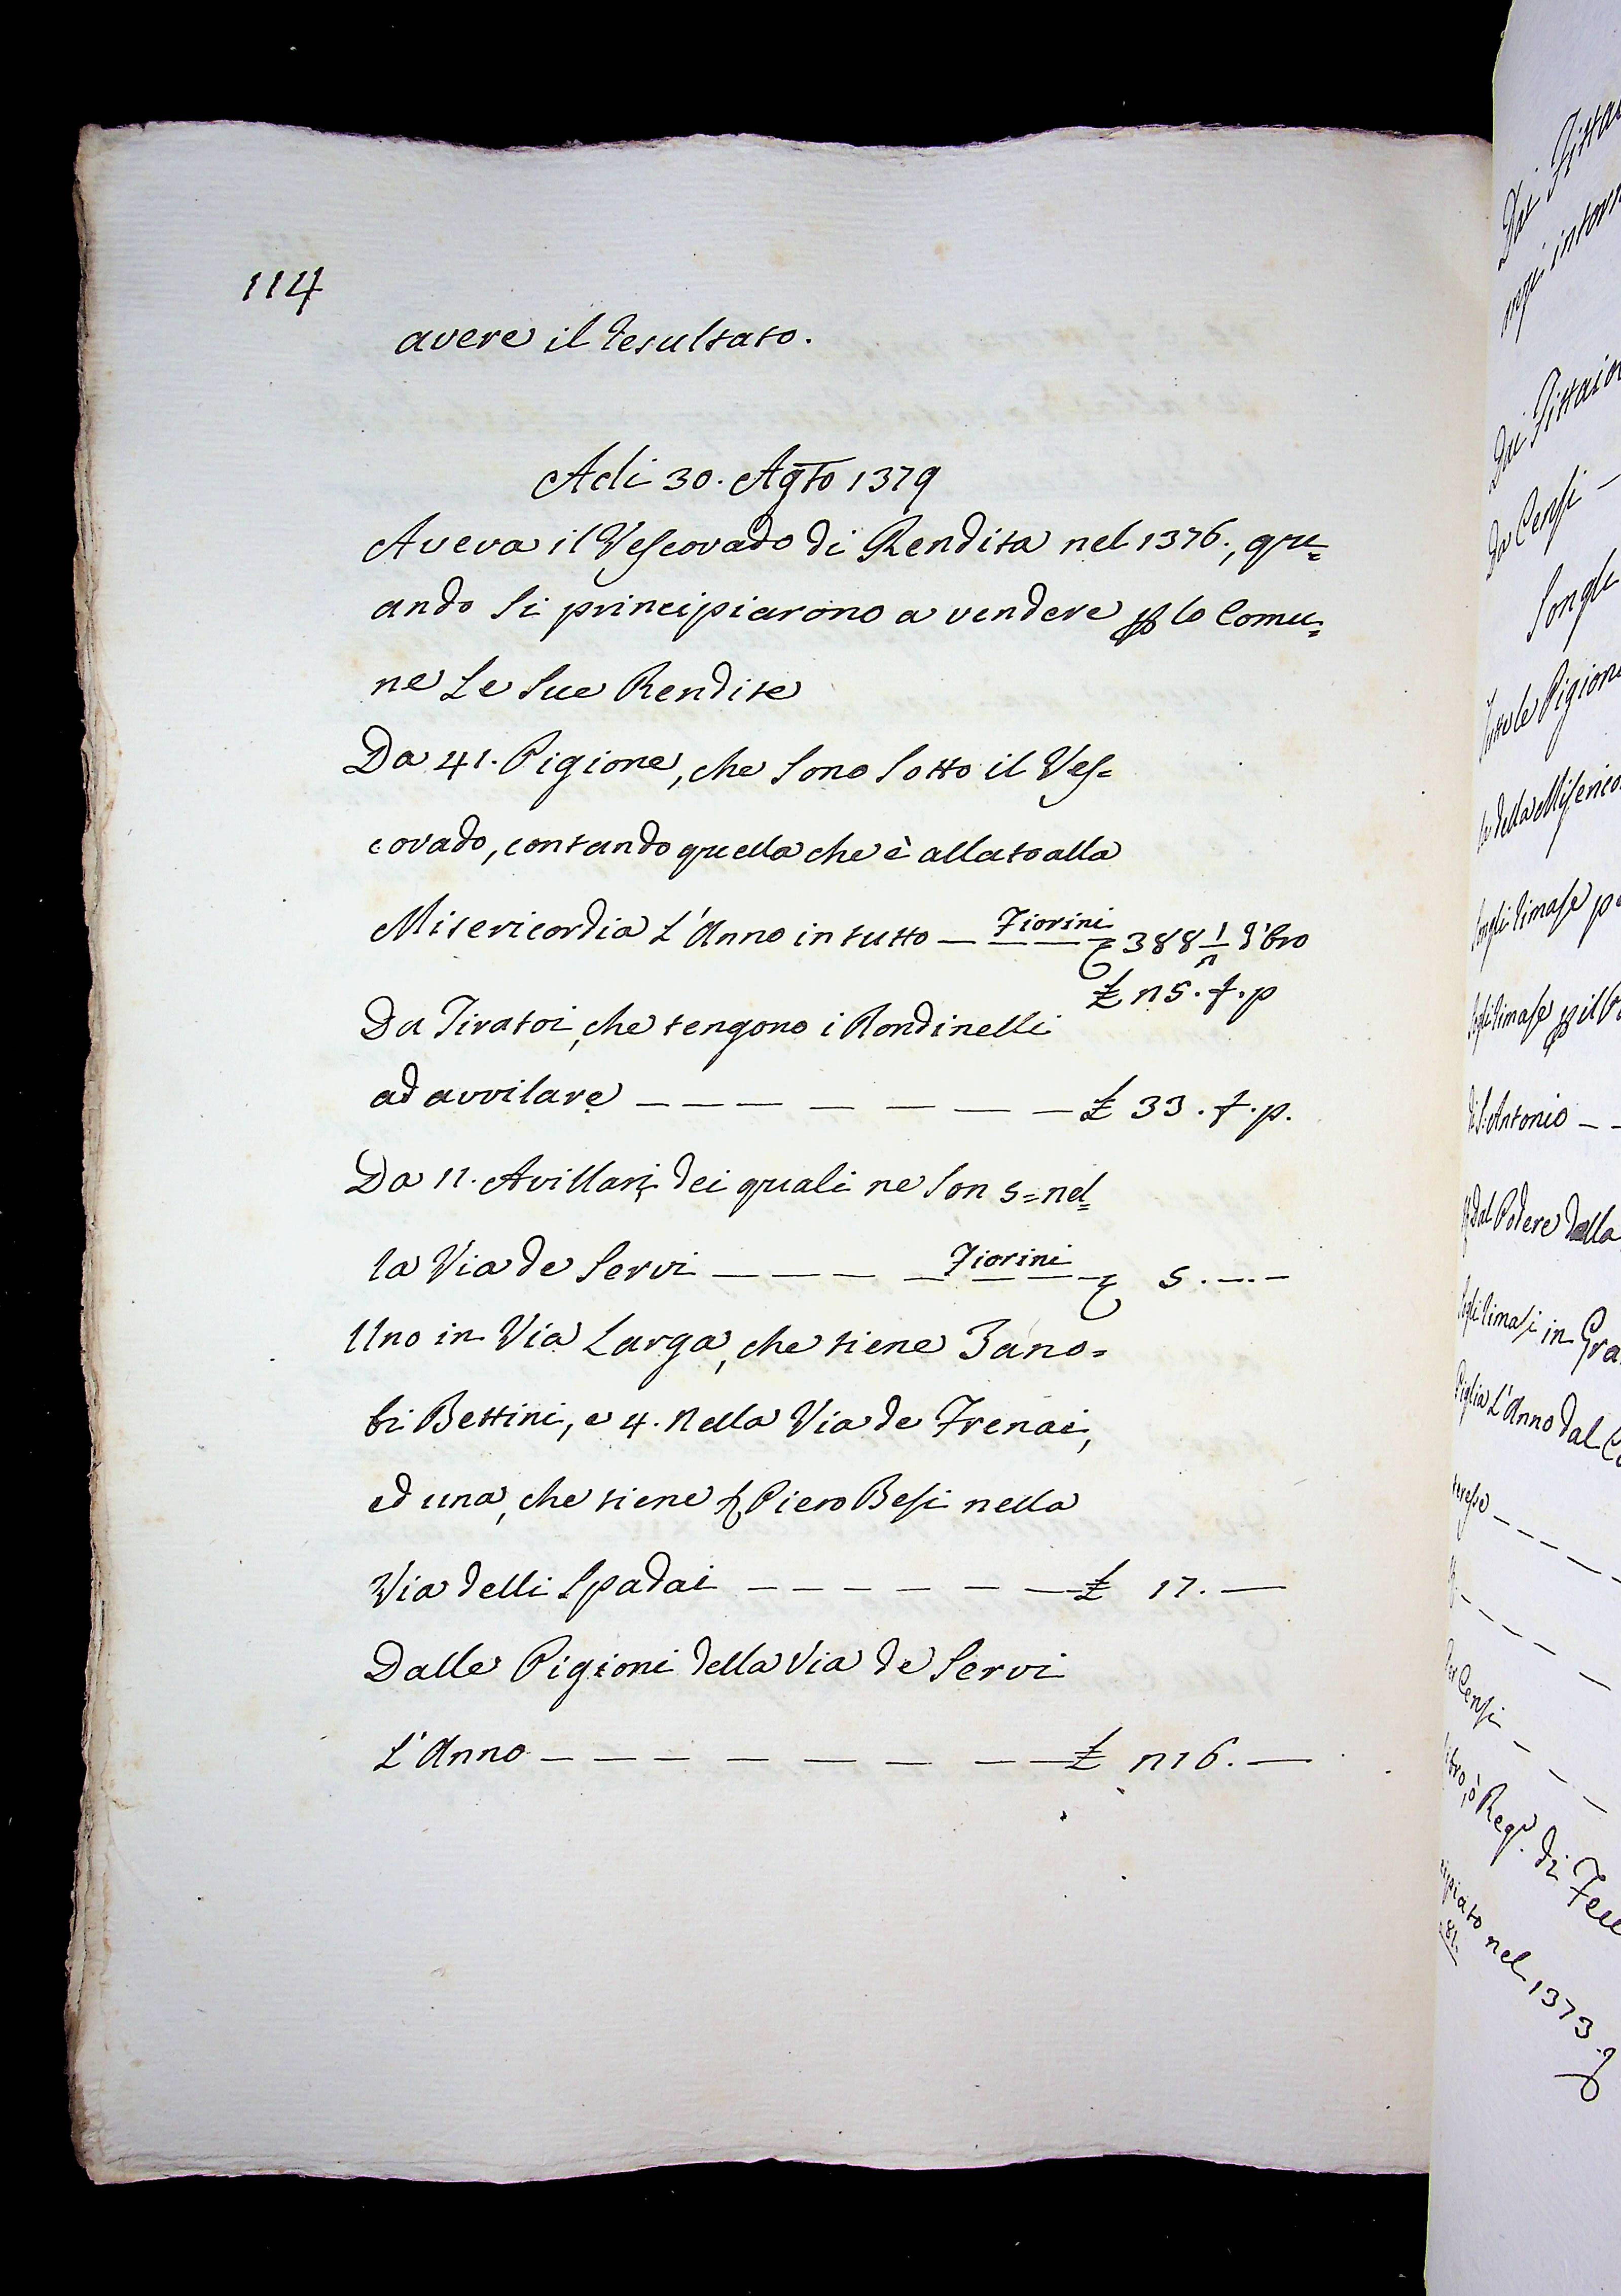 114
avere il resultato.
Adi 30. Agto 1379
Aveva il Vescovado di Rendita nel 1376., qu=
ando si principiarono a vendere p lo Comu=
ne Le sue Rendite
Da 41. Pigione, che sono sotto il Ves=
covado, contando quella che è allato alla
Misericordia L'Anno in tutto — Fiorini 388 1/2 d'oro
£ 25. f. p
Da Tiratoi, che tengono i Rondinelli
ad avvilare — — — — — — — £ 33. f. p.
Da 11. Avillari dei quali ne son 5 = nel=
la Via de Servi — — — — Fiorini 5. — . —
Uno in Via Larga, che tiene Zano=
bi Bettini, e 4. nella Via de Frenai,
ed una, che tiene Piero Besi nella
Via delli Spadai — — — — — — £ 17. —
Dalle Pigioni della Via de Servi
L'Anno — — — — — — — £ 216. —
Dai
intorn
Dai Fittaio
Da Censi —
Songli
Tutte le Pigioni
della Miserico
Songli rimase p
Segli rimase p il
di S. Antonio — —
Dal Podere della
Segli rimasi in Gra
Piglia L'Anno dal
— — — —
— — — —
Per Censi — — —
libro, o Regº. di
cipiato nel 1373.
81.